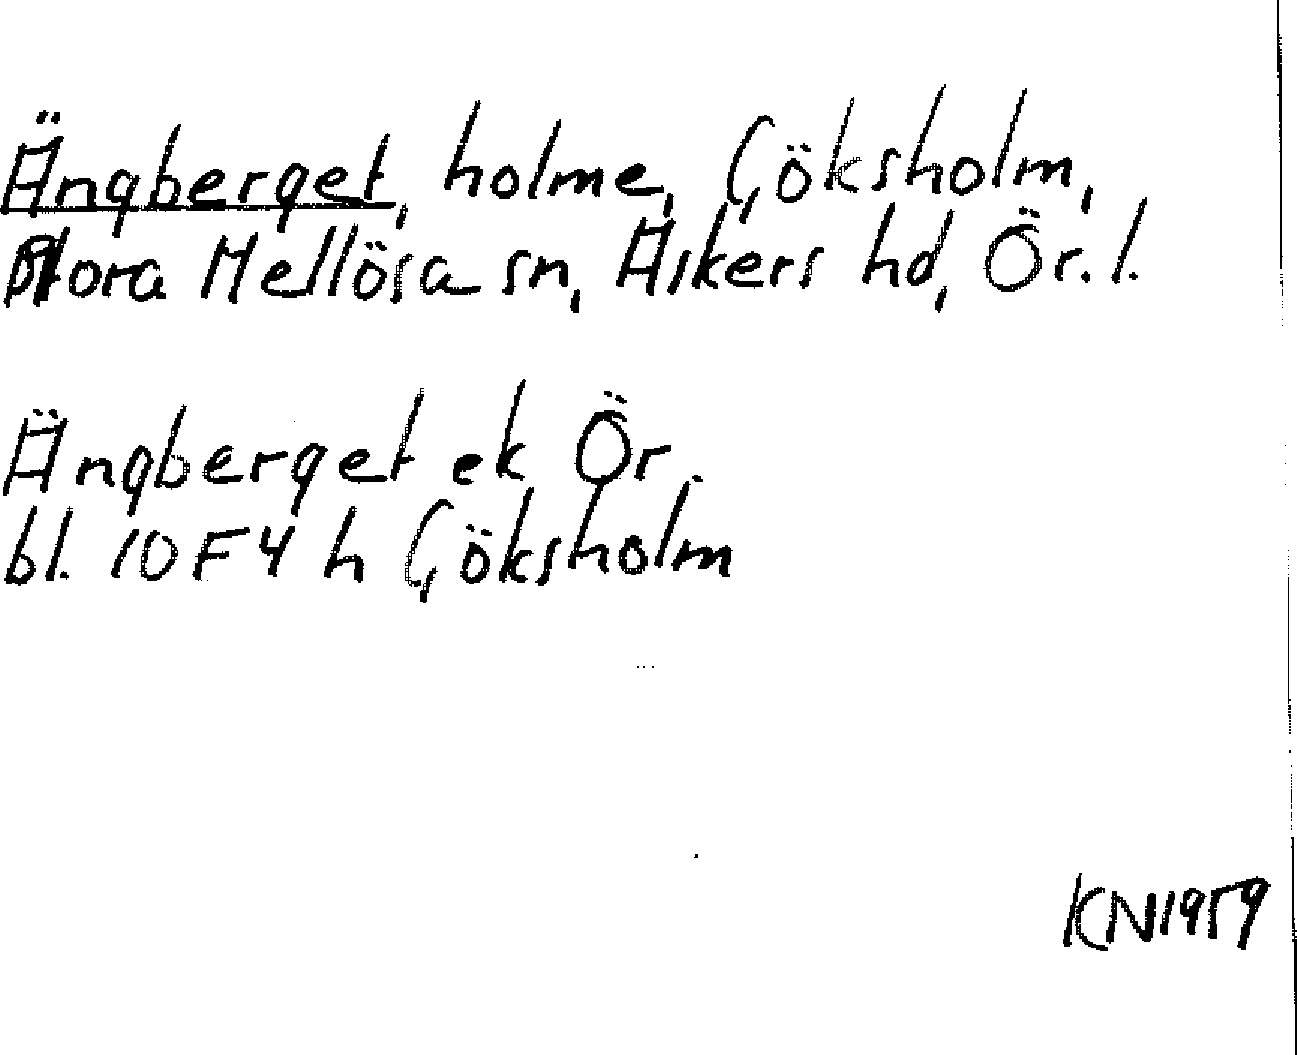 Ängberget, holme, Göksholm,
Stora Mellösa sn, Askers hd, Ör. l.
Ängberget ek Ör.
bl. 10 F 4 h Göksholm
KN 1959